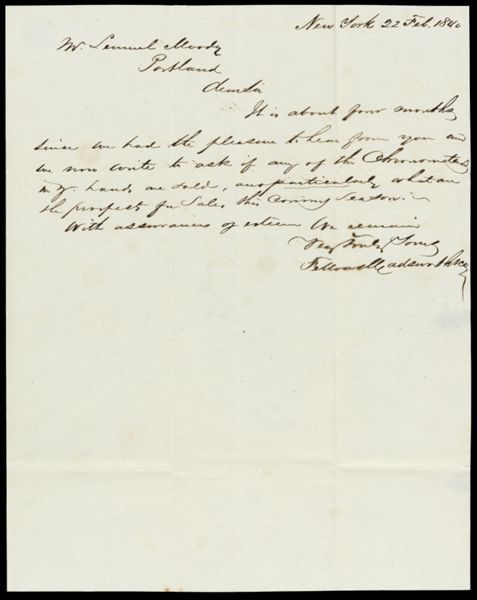 New York 22 Feb. 1840
Mr. Lemuel Moody
Portland
Dear Sir
It is about four months
since we had the pleasure to hear from you and
we now write to ask if any of the Chronometers
in yr. hands are sold, and particularly what are
the prospect for Sales, this Coming Season:—
With assurances of esteem We remain
Very Truly Yours
Fellows Wadsworth & Co